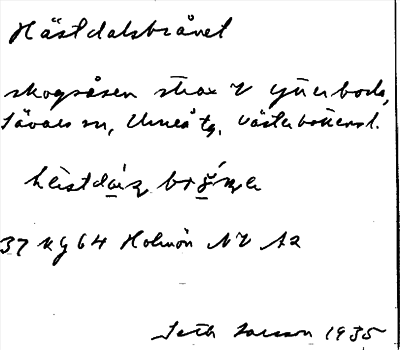 Hästdalsbrånet
skogsåsen strax V Ytterboda,
Sävars sn, Umeå tg, Västerbottens l.
brå̱ṇa
37 Kg 64 Holmön NV A2
Seth Larsson 1935